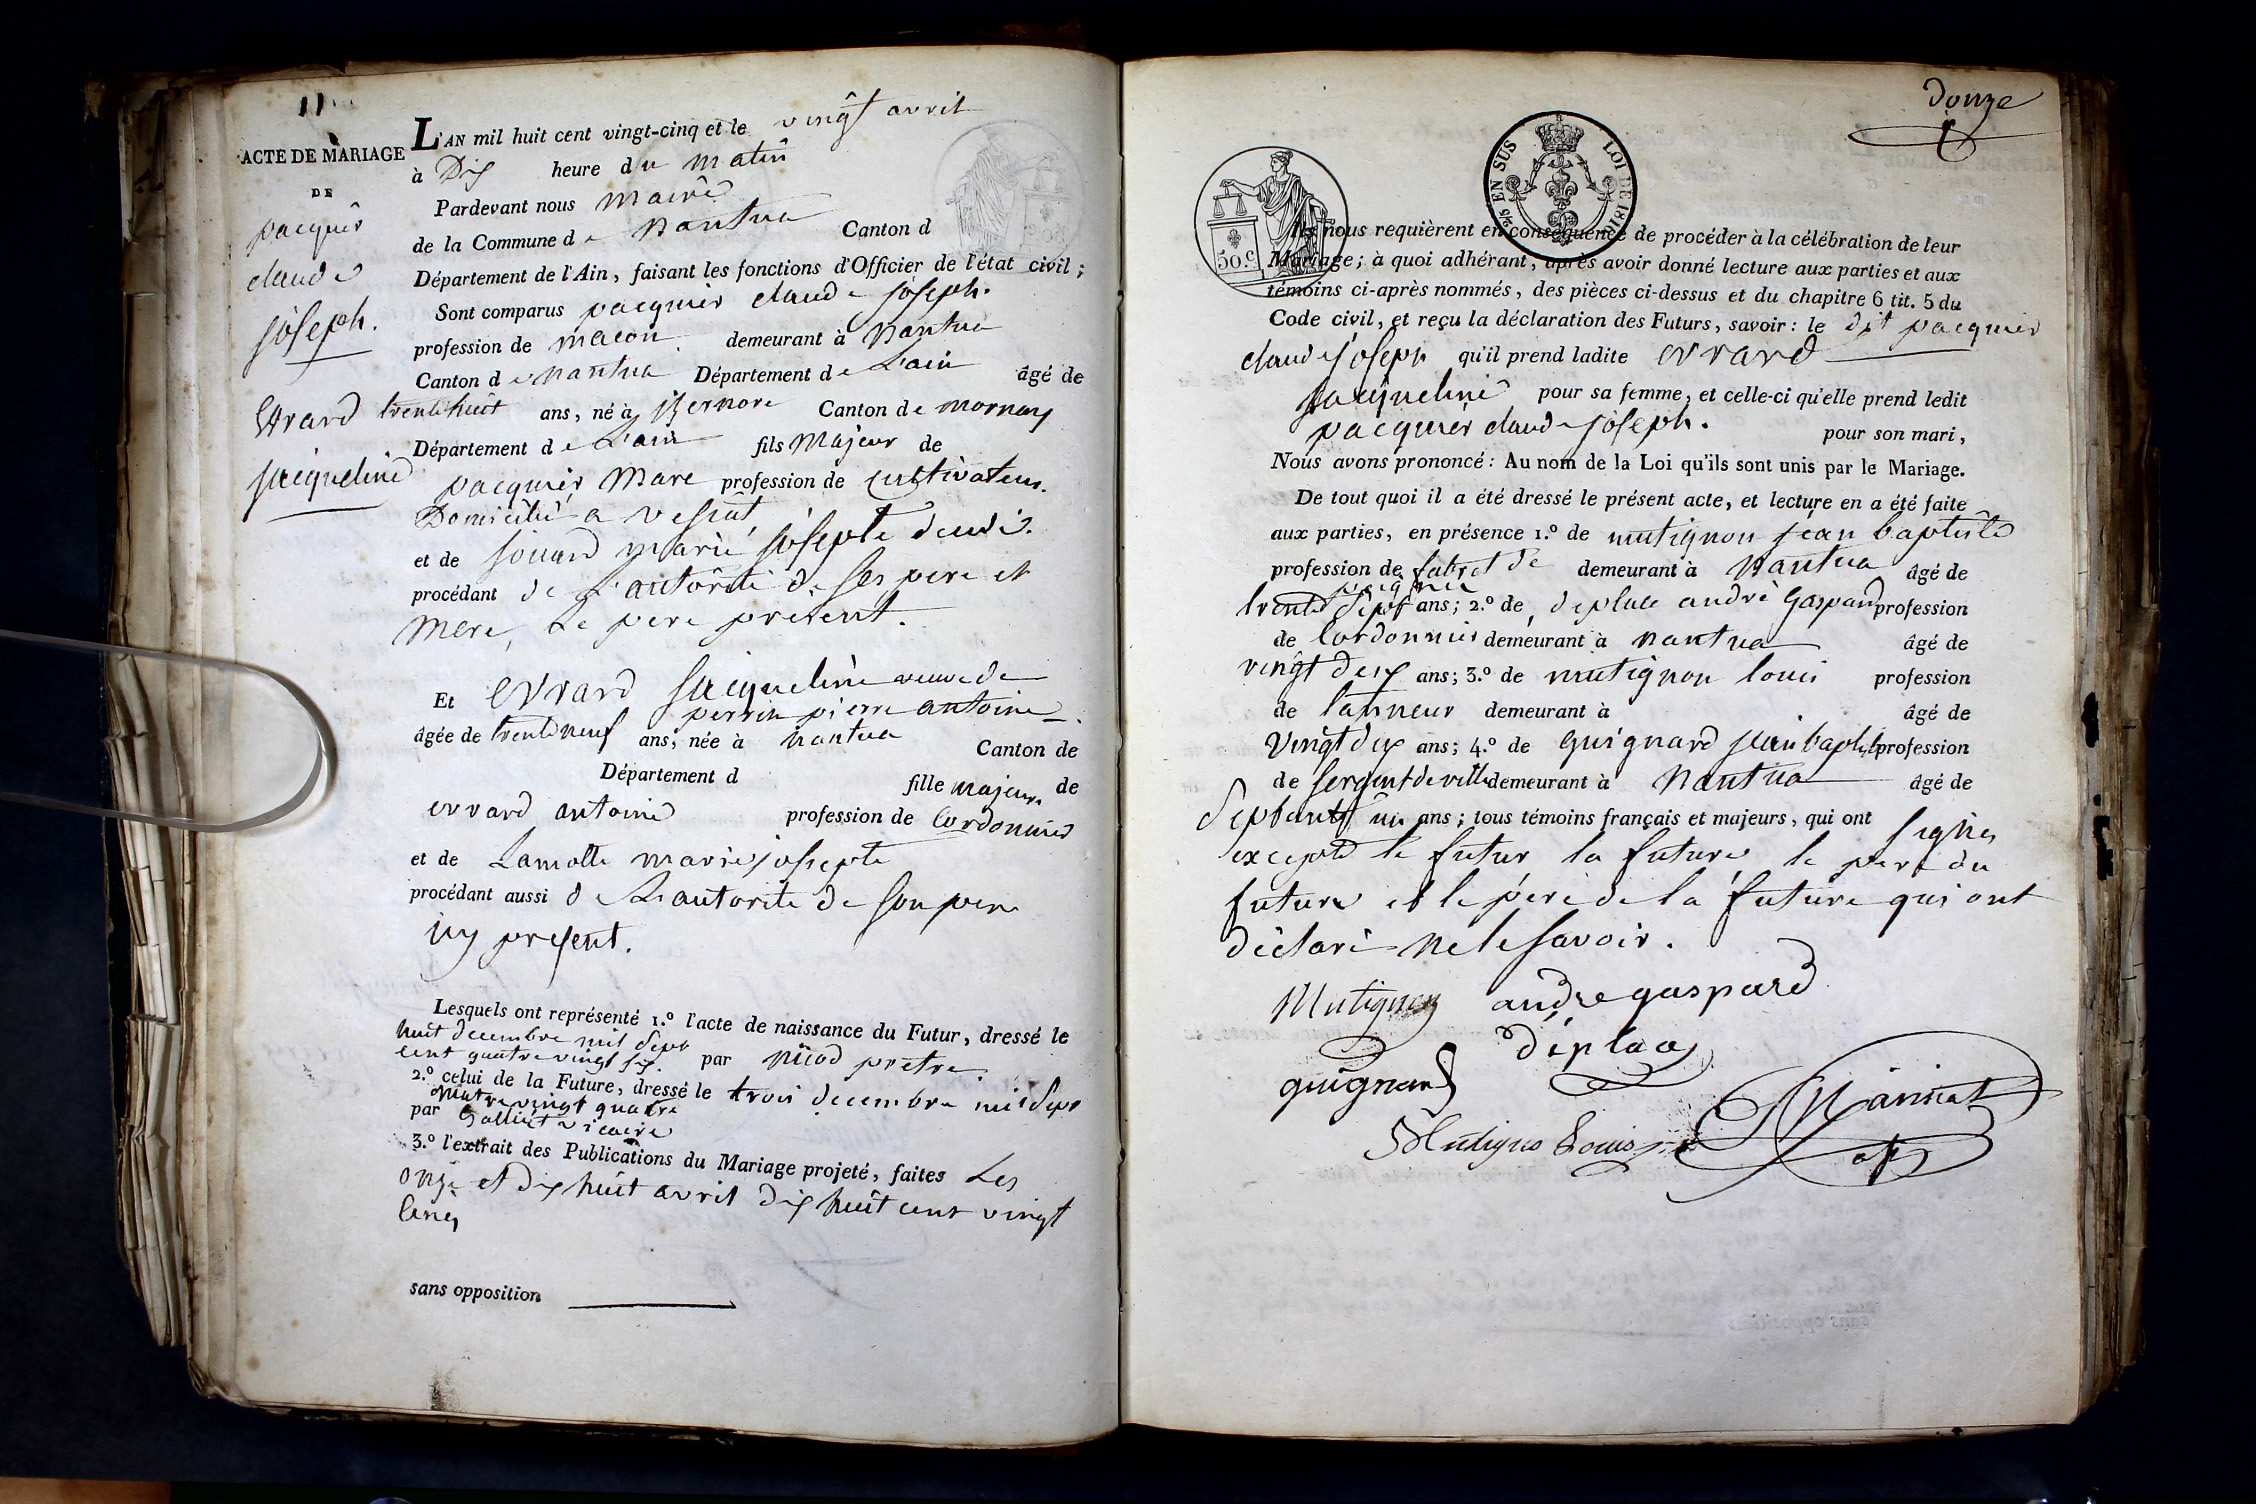 11
ACTE DE MARIAGE
DE
pacquier
claude
joseph.
Evrard
jacqueline
L'AN mil huit cent vingt-cinq et le vingt avril
à Dix heure du matin
Pardevant nous maire
de la Commune de Nantua Canton d
Département de l'Ain, faisant les fonctions d'Officier de l'état civil;
Sont comparus pacquier claude joseph.
profession de macon demeurant à Nantua
Canton de Nantua Département de L'ain âgé de
trente huit ans, né à Izernore Canton de mornay
Département de L'ain fils Majeur de
pacquier Marc profession de Cultivateur.
Domicilié a
et de marie josephte
procédant de L'autorité de ses pere et
mere, Le pere présent.
Et Evrard jacqueline veuve de
perrin pierre antoine
âgée de trente neuf ans, née à Nantua Canton de
Département d fille majeure de
evrard antoine profession de Cordonnier
et de Lamotte marie josephte
procédant aussi de L'autorite de son pere
icy present.
Lesquels ont représenté 1.º l'acte de naissance du Futur, dressé le
huit decembre mil sept
cent quatre vingt six. par Nicod prêtre.
2.º celui de la Future, dressé le trois decembre mil sept
quatre vingt quatre
par vicaire
3.º l'extrait des Publications du Mariage projeté, faites Les
onze et dix huit avril dix huit cent vingt
Cinq
sans opposition
douze
EN SUS LOI DE
50.c
Ils nous requièrent en conséquence de procéder à la célébration de leur
Mariage; à quoi adhérant, après avoir donné lecture aux parties et aux
témoins ci-après nommés, des pièces ci-dessus et du chapitre 6 tit. 5 du
Code civil, et reçu la déclaration des Futurs, savoir: le dit pacquier
claude joseph qu'il prend ladite evrard
jacqueline pour sa femme, et celle-ci qu'elle prend ledit
pacquier claude joseph. pour son mari,
Nous avons prononcé: Au nom de la Loi qu'ils sont unis par le Mariage.
De tout quoi il a été dressé le présent acte, et lecture en a été faite
aux parties, en présence 1.º de mutignon jean baptiste
profession de fabt de demeurant à Nantua âgé de
peigne
trente sept ans; 2.º de deplace andré Gaspard profession
de Cordonnier demeurant à nantua âgé de
vingt deux ans; 3.º de mutignon louis profession
de tanneur demeurant à âgé de
Vingt dix ans; 4.º de Guignard jean baptiste profession
de sergent de ville demeurant à Nantua âgé de
Septante un ans; tous témoins français et majeurs, qui ont signés
excepté le futur la future, le pere du
future et le père de la future qui ont
déclaré ne le savoir.
Mutignon andre gaspard
déplace
guignard
Mutignon Louis